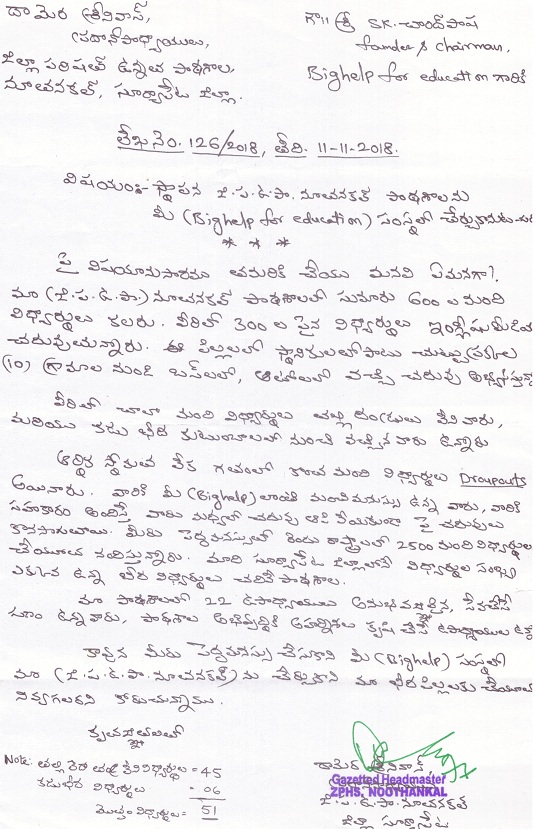 దామెర శ్రీనివాస్,
ప్రధానోపాధ్యాయులు,
జిల్లా పరిషత్ ఉన్నత పాఠశాల,
నూతనకల్, సూర్యాపేట జిల్లా.
గౌ॥ శ్రీ SK. చాంద్ పాష
founder & chairman,
Bighelp for education గారికి
లేఖ నెం. 126/2018, తేది. 11-11-2018.
విషయం:- స్థానిక జి.ప.ఉ.పా. నూతనకల్ పాఠశాలను
మీ (Bighelp for education) సంస్థలో చేర్చుకొనుట
* * *
పై విషయానుసారము తమరికి చేయు మనవి ఏమనగా?
మా (జి.ప.ఉ.పా.) నూతనకల్ పాఠశాలలో సుమారు 600 ల మంది
విద్యార్థులు కలరు. వీరిలో 300 ల పైన విద్యార్థులు ఇంగ్లీషుమీడియ
చదువుచున్నారు. ఈ పిల్లలలో స్థానికులతోపాటు చుట్టుప్రక్కల
(10) గ్రామాల నుండి బస్‌లలో, ఆటోలలో వచ్చి చదువు అభ్యసిస్తున్నా
వీరిలో చాలా మంది విద్యార్థులు తల్లి దండ్రులు లేని వారు,
మరియు కడు బీద కుటుంబాలలో నుంచి వచ్చిన వారు ఉన్నారు
ఆర్థిక స్థోమత లేక గతంలో కొంత మంది విద్యార్థులు Droupouts
అయినారు. వారికి మీ (Bighelp) లాంటి మంచి మనస్సు ఉన్న వారు, వారికి
సహకారం అందిస్తే వారు మధ్యలో చదువు ఆపి వేయకుండా పై చదువులు
కొనసాగుతాయి. మీరు పెద్దమనస్సుతో రెండు రాష్ట్రాలలో 2500 మంది విద్యార్థులకు
చేయూత నందిస్తున్నారు. మాది సూర్యాపేట జిల్లాలోనే విద్యార్థుల సంఖ్య
ఎక్కువ ఉన్న బీద విద్యార్థులు చదివే పాఠశాల.
మా పాఠశాలలో 22 ఉపాధ్యాయులు అనుభవజ్ఞులైన, సేవచేసే
గుణం ఉన్నవారు, పాఠశాల అభివృద్ధికి అహర్నిశలు కృషి చేసే ఉపాధ్యాయులు
కావున మీరు పెద్దమనస్సు చేసుకొని మీ (Bighelp) సంస్థలో
మా (జి.ప.ఉ.పా. నూతనకల్) ను చేర్చుకొని మా బీద పిల్లలకు చేయూత
నివ్వగలరని కోరుచున్నాము.
కృతజ్ఞతలతో
Note: తల్లి లేక తండ్రి లేని విద్యార్థులు = 45
కడుబీద విద్యార్థులు = 06
మొత్తం విద్యార్థులు = 51
దామెర శ్రీనివాస్,
Gazetted Headmaster
ZPHS, NOOTHANKAL
జి.ప.ఉ.పా. నూతనకల్
జిల్లా సూర్యాపేట